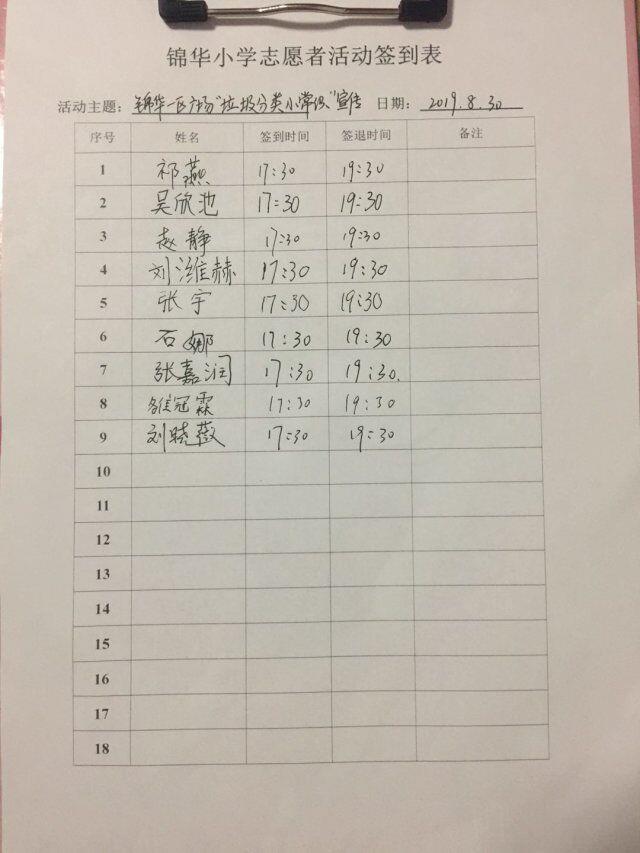 锦华小学志愿者活动签到表
活动主题: 锦华一区广场"垃圾分类小常识"宣传 日期: 2019.8.30
序号 姓名 签到时间 签退时间 备注
1 祁燕 17:30 19:30
2 吴欣池 17:30 19:30
3 赵静 17:30 19:30
4 刘潍赫 17:30 19:30
5 张宇 17:30 19:30
6 石娜 17:30 19:30
7 张嘉润 17:30 19:30.
8 冠霖 17:30 19:30
9 刘晓薇 17:30 19:30
10
11
12
13
14
15
16
17
18